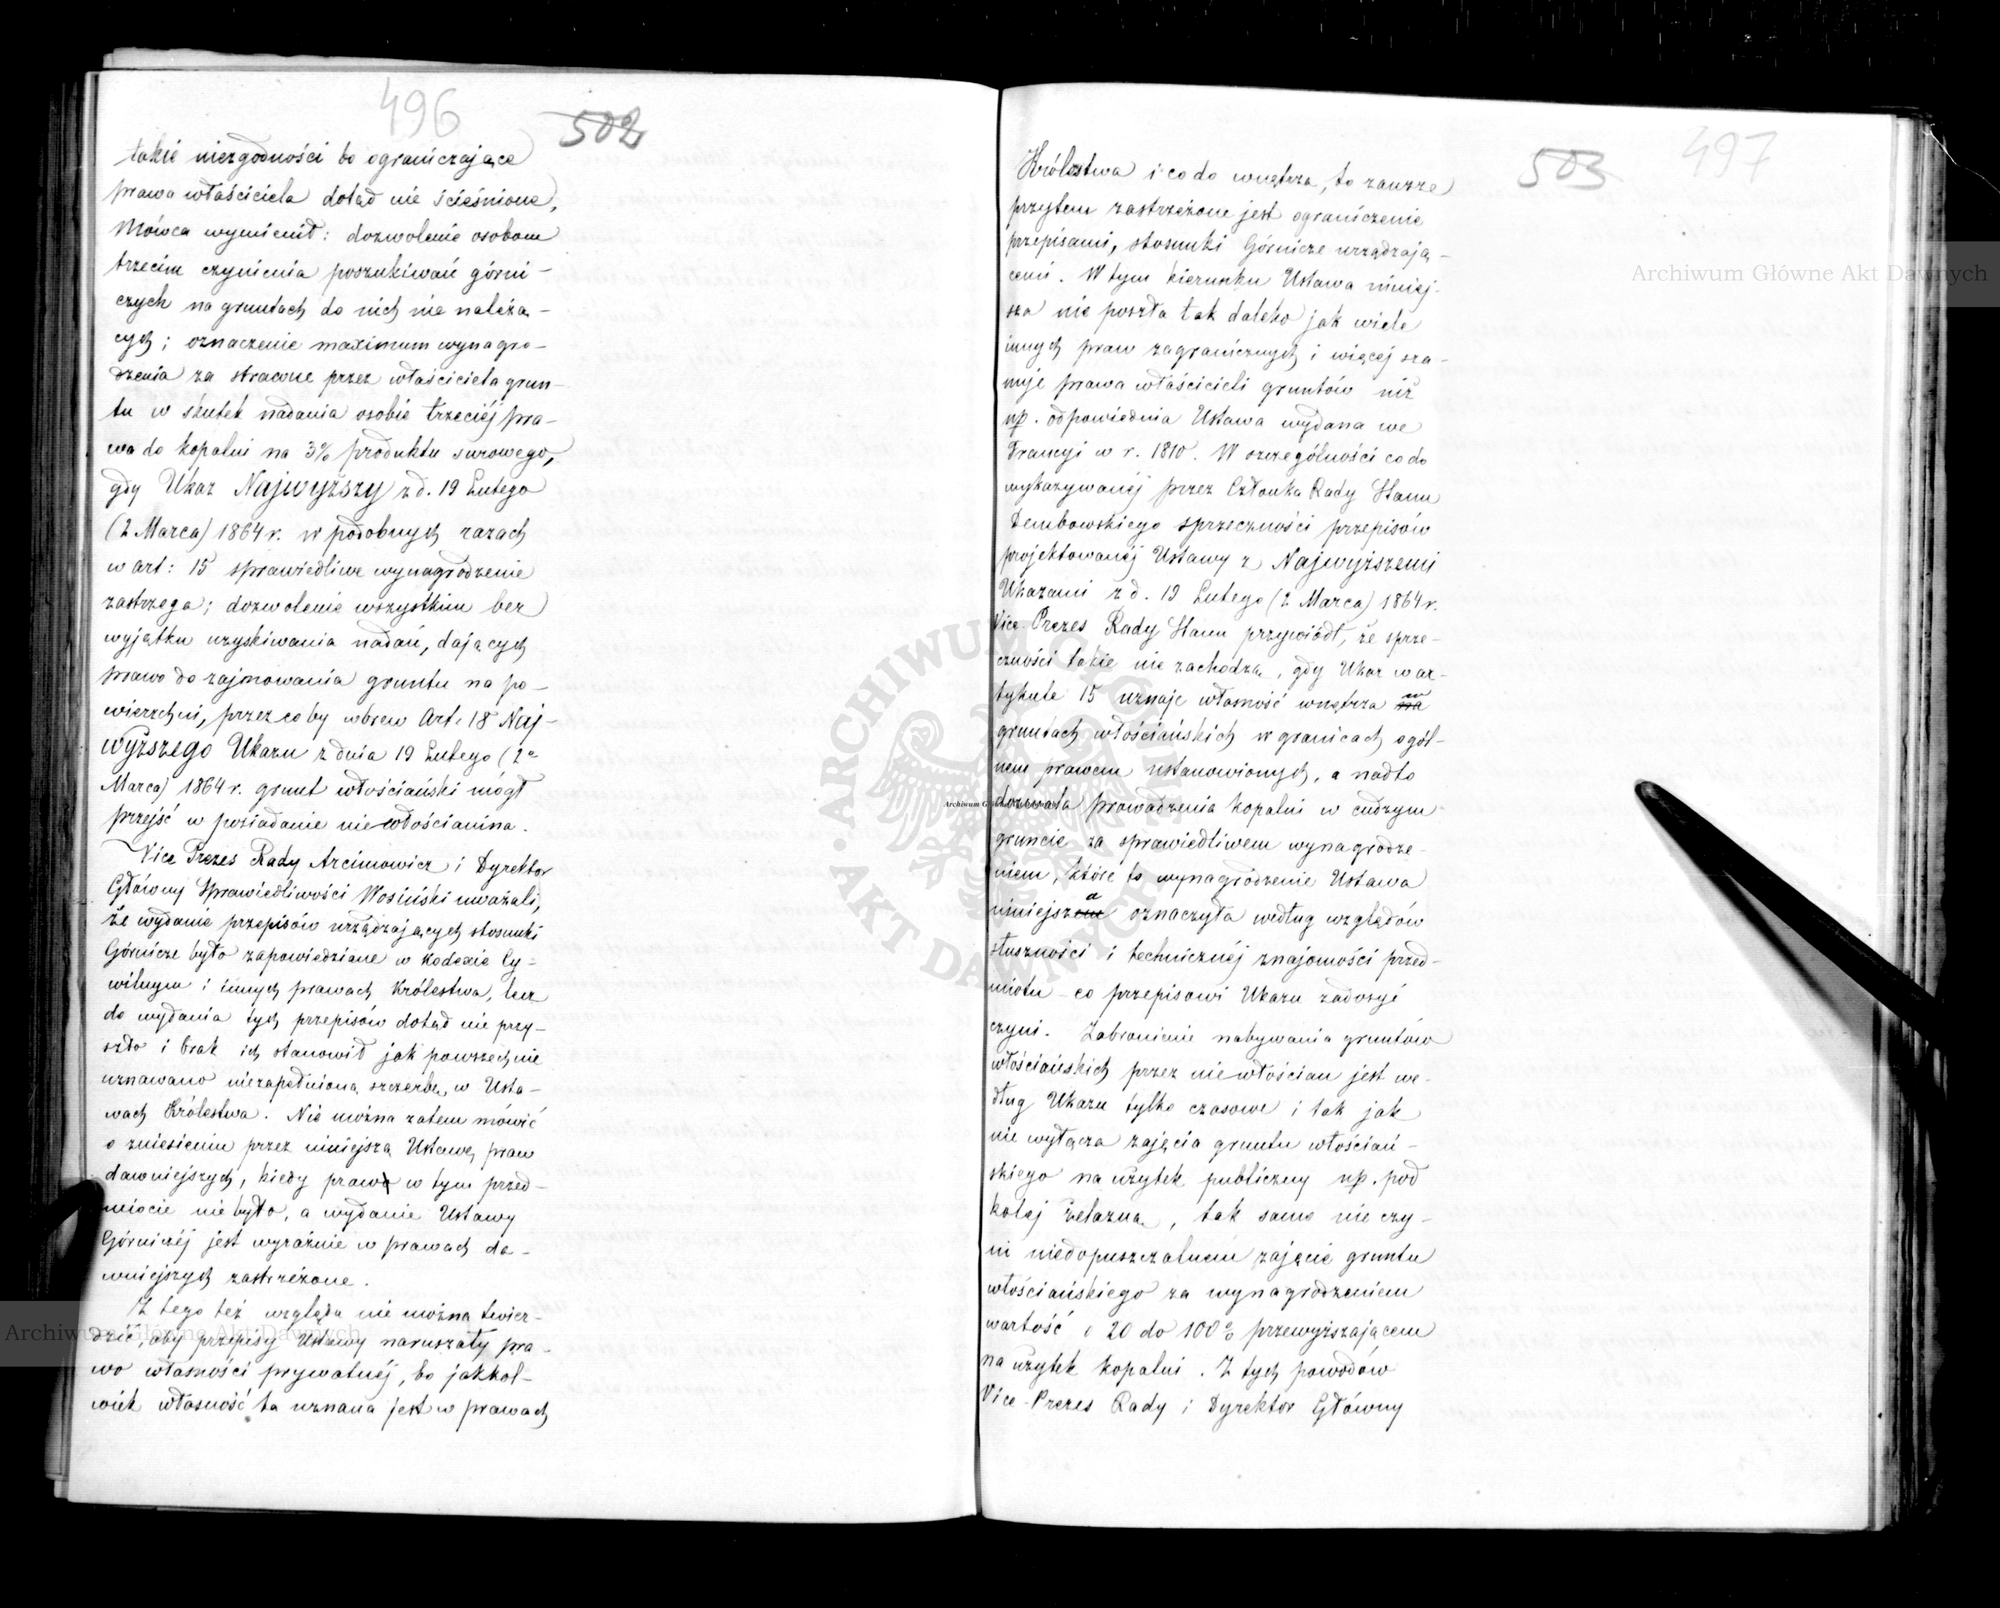 496
502
takie niezgodności bo ograniczające
prawa właściciela dotąd nie ścieśnione,
Mówca wymienił: dozwolenie osobom
trzecim czynienia poszukiwań górni-
czych na gruntach do nich nie należą-
cych; oznaczenie maximum wynagro-
dzenia za stracone przez właściciela grun-
tu w skutek nadania osobie trzeciéj pra-
wa do kopalni na 3% produktu surowego,
gdy Ukaz Najwyższy z d. 19 Lutego
(2 Marca) 1864 r. w podobnych razach
w art: 15 sprawiedliwe wynagrodzenie
zastrzega; dozwolenie wszystkim bez
wyjątku uzyskiwania nadań, dających
prawo do zajmowania gruntu na po-
wierzchni, przez co by wbrew Art. 18 Naj-
wyższego Ukazu z dnia 19 Lutego (2
Marca) 1864 r. grunt włościański mógł
przejść w posiadanie nie włościanina.
Vice Prezes Rady Arcimowicz i Dyrektor
Główny Sprawiedliwości Wosiński uważali,
że wydanie przepisów urządzających stosunki
Górnicze było zapowiedziane w Kodexie Cy-
wilnym i innych prawach Królestwa, lecz
do wydania tych przepisów dotąd nie przy-
szło i brak ich stanowił jak powszechnie
uznawano niezapełnioną szczerbę w Usta-
wach Królestwa. Nie można zatem mówić
o zniesieniu przez niniejszą Ustawę praw
dawniejszych, kiedy prawa w tym przed-
miocie nie było, a wydanie Ustawy
Górniczéj jest wyraźnie w prawach da-
wniejszych zastrzeżone.
Z tego też względu nie można twier-
dzić, aby przepisy Ustawy naruszały pra-
wo własności prywatnéj, bo jakkol-
wiek własność ta uznana jest w prawach
503
497
Królestwa i co do wnętrza, to zawsze
przytem zastrzeżone jest ograniczenie
przepisami, stosunki Górnicze urządzają-
cemi. W tym kierunku Ustawa niniej-
sza nie poszła tak daleko jak wiele
innych praw zagranicznych i więcej sza-
nuje prawa właścicieli gruntów niż
np. odpowiednia Ustawa wydana we
Francyi w r. 1810. W szczególności co do
wykazywanéj przez Członka Rady Stanu
Dembowskiego sprzeczności przepisów
projektowanéj Ustawy z Najwyższemi
Ukazami z d. 19 Lutego (2 Marca) 1864 r.
Vice-Prezes Rady Stanu przywiódł, że sprze-
czności takie nie zachodzą, gdy Ukaz w ar-
tykule 15 uznaje własność wnętrza w
gruntach włościańskich w granicach ogól-
nem prawem ustanowionych, a nadto
dozwala prowadzenia kopalni w cudzym
gruncie za sprawiedliwem wynagrodze-
niem, które to wynagrodzenie Ustawa
niniejsza oznaczyła według względów
słuszności i technicznéj znajomości przed-
miotu - co przepisowi Ukazu zadosyć
czyni. Zabronienie nabywania gruntów
włościańskich przez nie włościan jest we-
dług Ukazu tylko czasowe i tak jak
nie wyłącza zajęcia gruntu włościań-
skiego na użytek publiczny np. pod
kolej żelazną, tak samo nie czy-
ni niedopuszczalnem zajęcie gruntu
włościańskiego za wynagrodzeniem
wartość o 20 do 100% przewyższającem
na użytek kopalni. Z tych powodów
Vice-Prezes Rady i Dyrektor Główny
Archiwum Główne Akt Dawnych
Archiwum Główne Akt Dawnych
ARCHIWUM GŁÓWNE AKT DAWNYCH